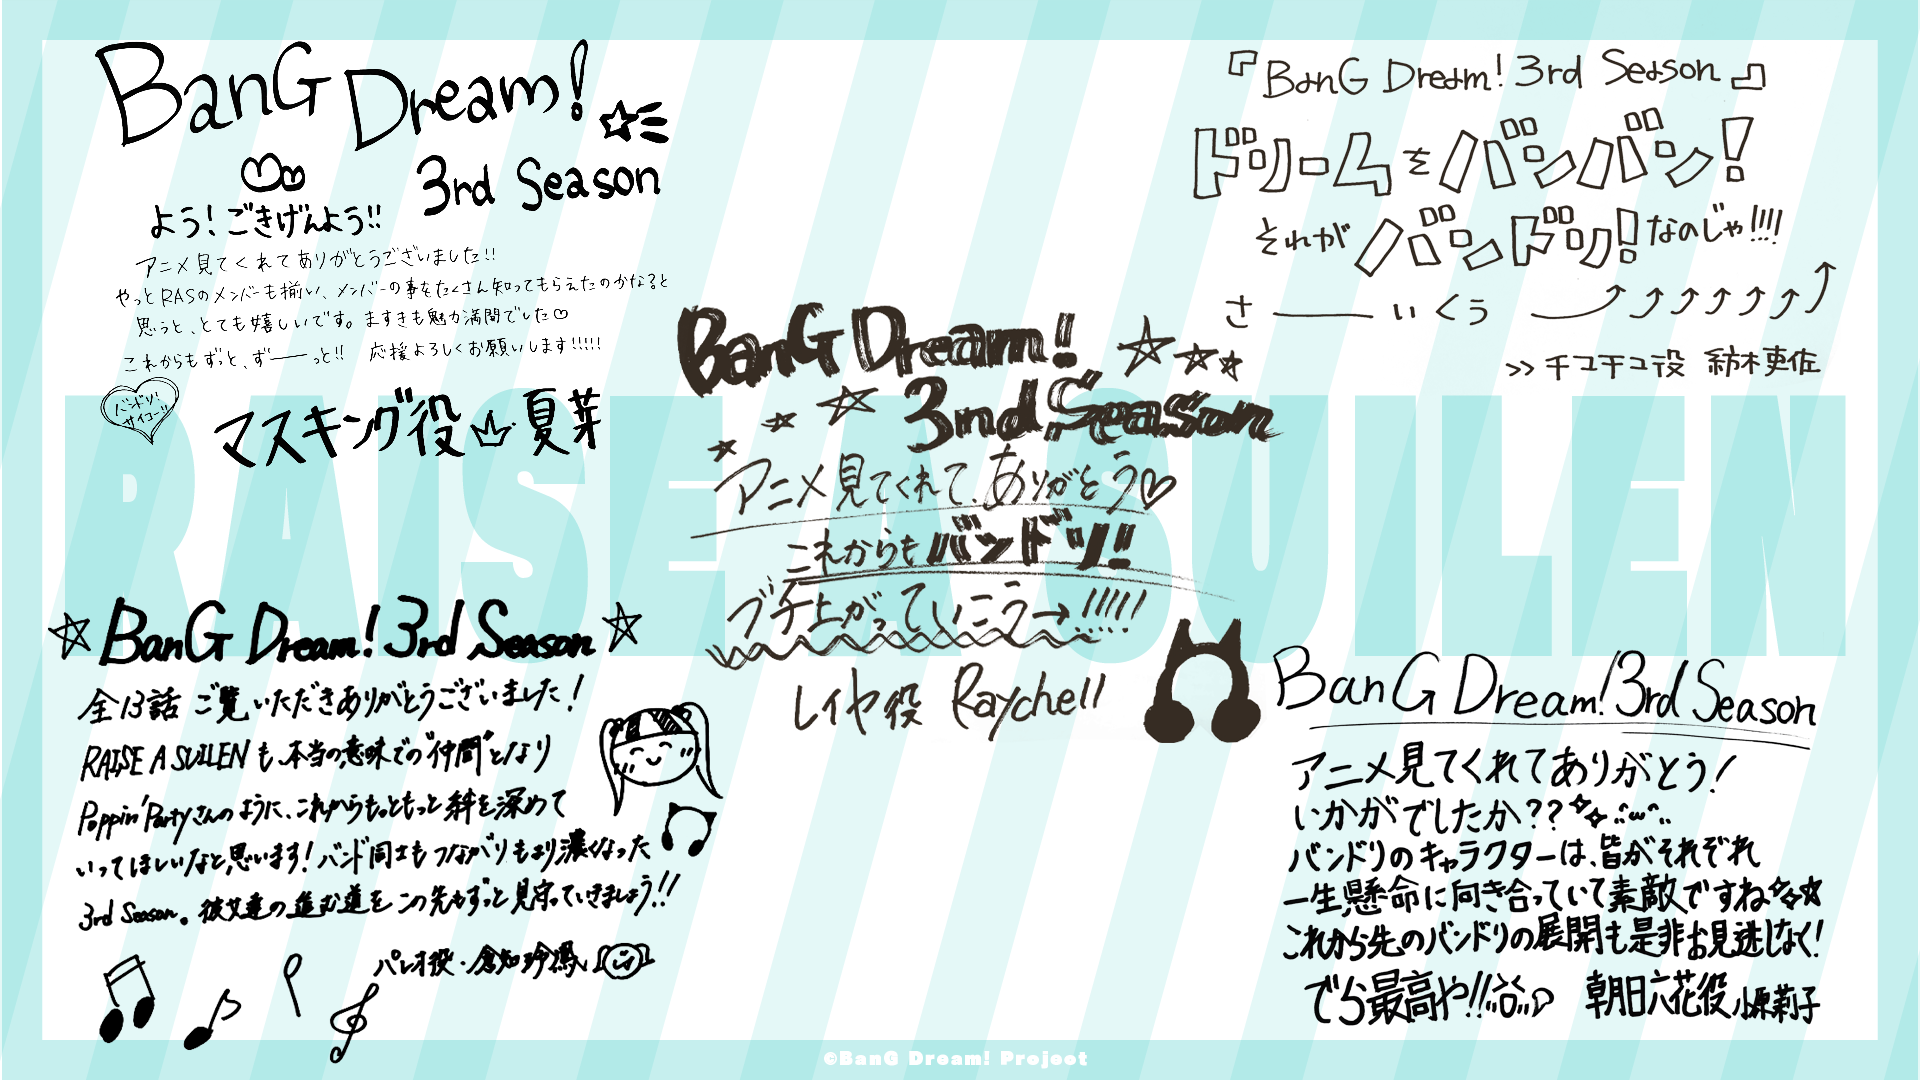 BanG Dream!
3rd Season
よう!ごきげんよう!!
アニメ見てくれてありがとうございました!!
やっとRASのメンバーも揃い、メンバーの事をたくさん知ってもらえたのかなると
思うと、とても嬉しいです。ますきも魅力満開でした♡
これからもずっと、ず——っと!! 応援よろしくお願いします!!!!!
バンドリ!
サイコー!!
マスキング役 夏芽
『BanG Dream! 3rd Season』
ドリームをバンバン!
それがバンドリ!なのじゃ!!!!
さ——いくぅ
>> チユチユ役 紡木吏佐
BanG Dream!
3nd Season
アニメ見てくれて、ありがとう♡
これからもバンドリ!!
ブチ上がっていこう→!!!!!
レイヤ役 Raychell
☆BanG Dream! 3rd Season☆
全13話 ご覧いただきありがとうございました!
RAISE A SUILENも、本当の意味での"仲間"となり
Poppin'Partyさんのように、これからもっともっと絆を深めて
いってほしいなと思います!バンド同士もつながりもより濃くなった
3rd Season。彼女達の進む道をこの先もずっと見守っていきましょう!!
パレオ役・倉知玲鳳
BanG Dream! 3rd Season
アニメ見てくれてありがとう!
いかがでしたか??
バンドリのキャラクターは、皆がそれぞれ
一生懸命に向き合っていて素敵ですね
これから先のバンドリの展開も是非お見逃しなく!
でら最高や!!
朝日六花役 小原莉子
RAISE A SUILEN
©BanG Dream! Project